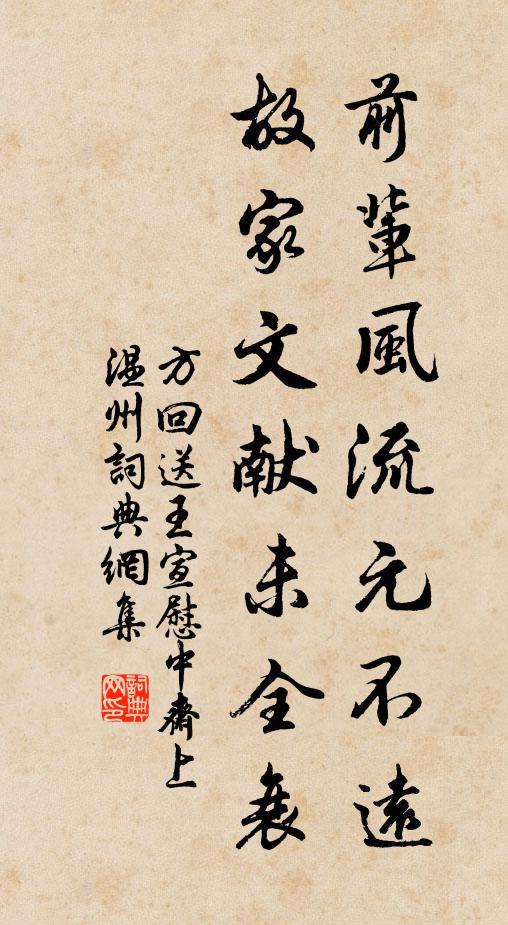 前輩風流元不遠
故家文献未全衰
方回送王宣慰中齋上
温州詞典網集
詞典网印